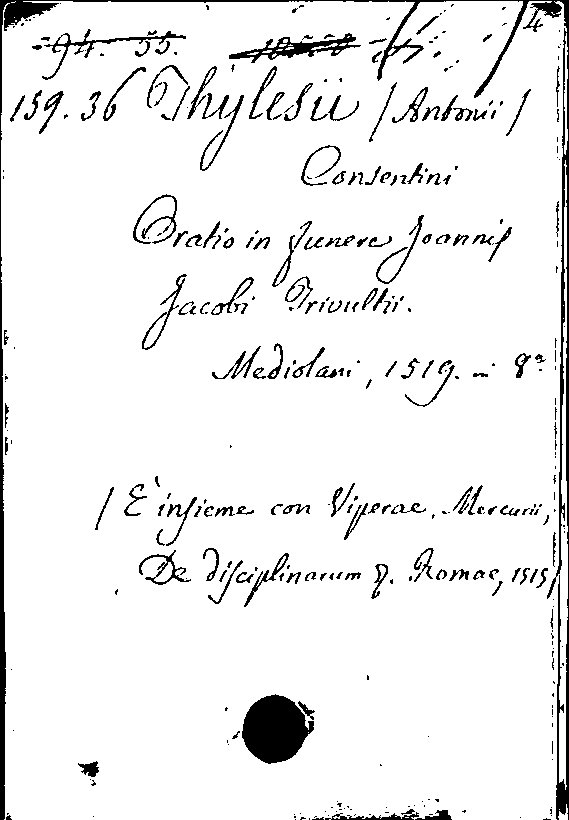 94. 55.
4
159. 36 Thylesii /Antonii/
Consentini
Oratio in funere Joannis
Jacobi Trivultii.
Mediolani, 1519. in 8°
/ E' insieme con Viperae, Mercurii,
De disciplinarum &. Romae, 1515/